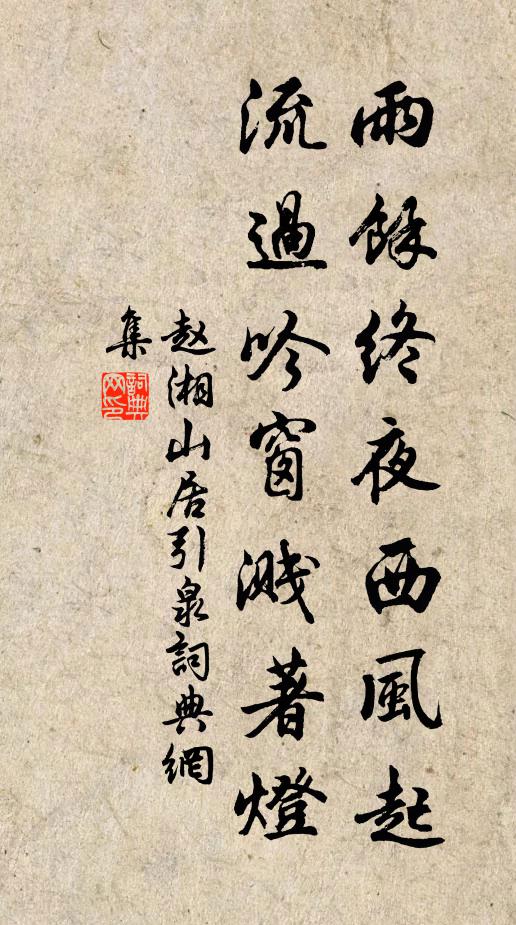 雨餘終夜西風起
流過吟窗濺著燈
赵湘山居引泉詞典網
集
詞典
网印